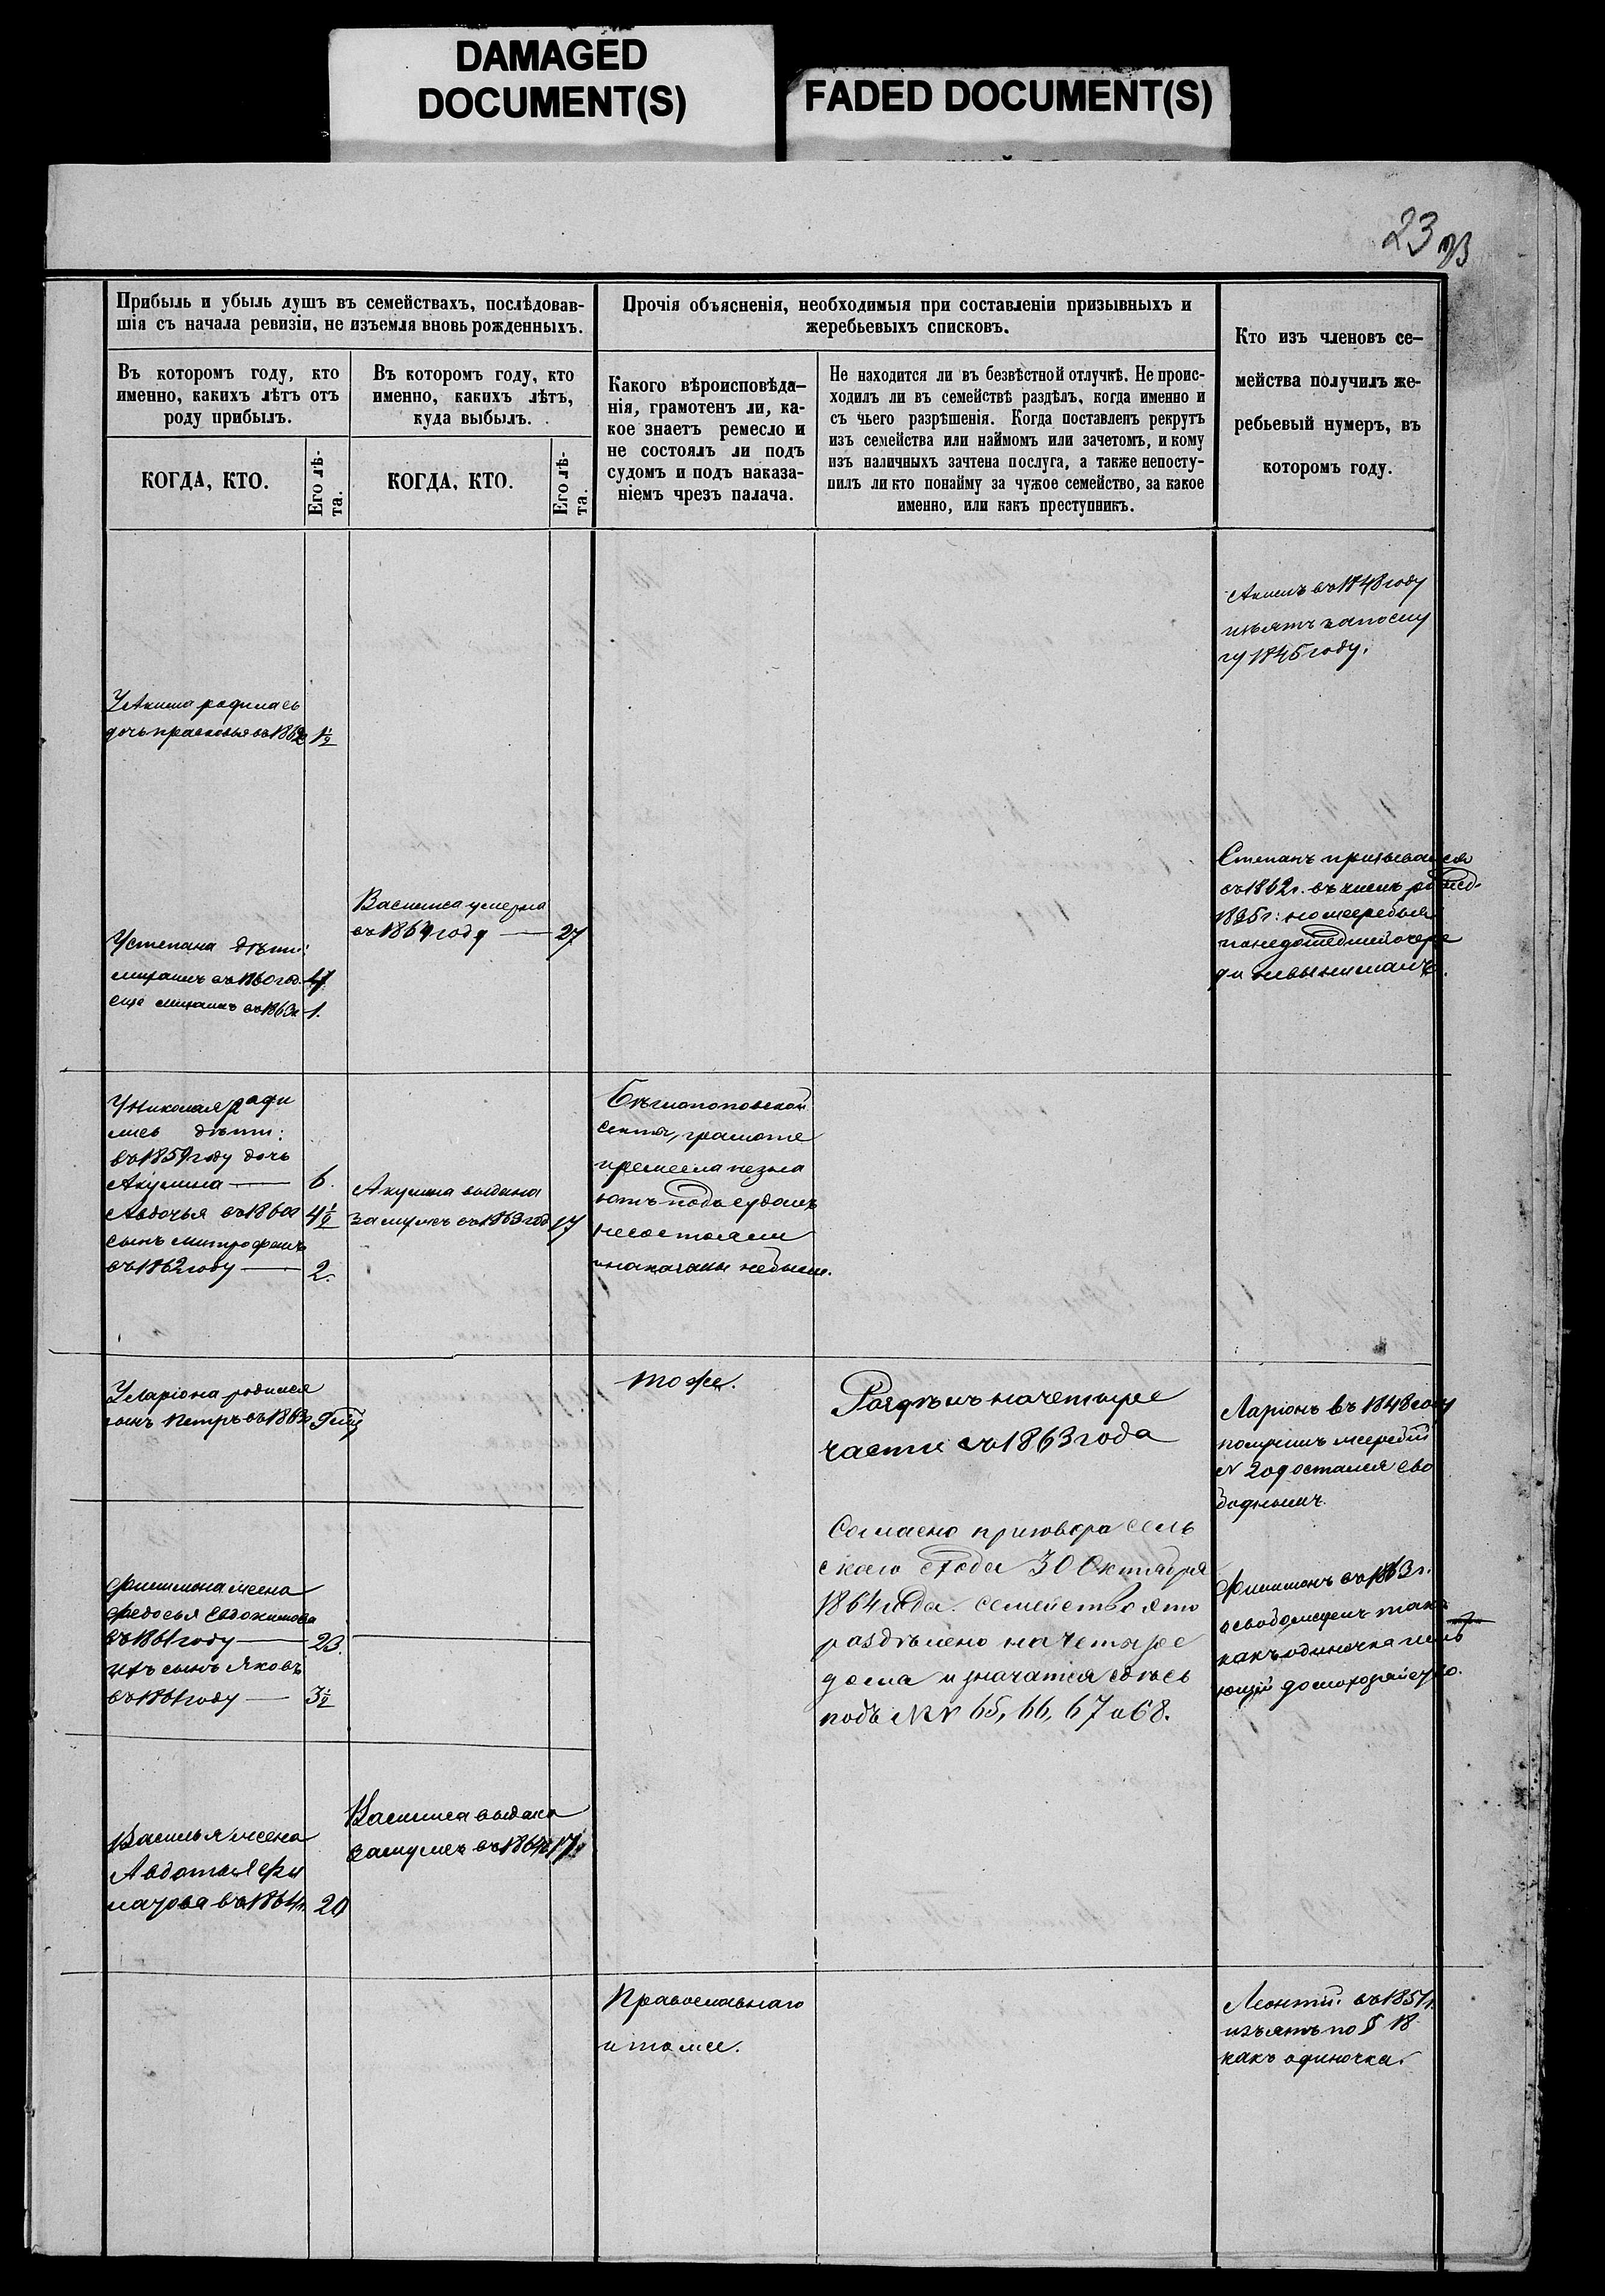 DAMAGED
DOCUMENT(S)
FADED DOCUMENT(S)
23
Прибыль и убыль душъ въ семействахъ, послѣдовав-
шія съ начала ревизіи, не изъемля вновь рожденныхъ.
Прочія объясненія, необходимыя при составленіи призывныхъ и
жеребьевыхъ списковъ.
Кто изъ членовъ се-
мейства получилъ же-
ребьевый нумеръ, въ
которомъ году.
Въ которомъ году, кто
именно, какихъ лѣтъ отъ
роду прибылъ.
Въ которомъ году, кто
именно, какихъ лѣтъ,
куда выбылъ.
Какого вѣроисповѣда-
нія, грамотенъ ли, ка-
кое знаетъ ремесло и
не состоялъ ли подъ
судомъ и подъ наказа-
ніемъ чрезъ палача.
Не находится ли въ безвѣстной отлучкѣ. Не проис-
ходилъ ли въ семействѣ раздѣлъ, когда именно и
съ чьего разрѣшенія. Когда поставленъ рекрутъ
изъ семейства или наймомъ или зачетомъ, и кому
изъ наличныхъ зачтена послуга, а также непосту-
пилъ ли кто понайму за чужое семейство, за какое
именно, или какъ преступникъ.
КОГДА, КТО.
Его лѣ-
та.
КОГДА, КТО.
Его лѣ-
та.
Акимъ въ 1848 году
изъятъ за послу
гу 1845 году.
У Акима родилась
дочь прасковья въ 1862 1½
Степанъ призывался
въ 1862 г. въ числѣ
1835 г: но жеребья
панедошедшей очере
ди невынималъ.
Василиса умерла
въ 1864 году — 27
У степана дѣти:
въ 1860 год. 4
еще въ 1863 г 1.
У Николая роди
лись дѣти:
въ 1859 году дочь
Акулина — 6.
Авдотья въ 1860 г 4½
сынъ митрофанъ
въ 1862 году — 2.
Акулина выдана
замужъ въ 1863 год 17
Бѣглопоповской
секты, грамоте
иремесла незна
ютъ подъ судомъ
несостояли
инаказаны небыли.
У Ларіона родился
сынъ Петръ въ 1863 г
тоже.
Раздѣлъ на четыре
части съ 1863 года
Ларіонъ въ 1848 году
получилъ жеребій
N 209 остался сво
боднымъ.
Согласно приговора сель
скаго схода 30 Октября
1864 года семейство это
раздѣлено на четыре
дома и значатся здѣсь
подъ NN 65, 66, 67 и 68.
Филимона жена
Федосья Евдокимова
въ 1861 году — 23.
ихъ сынъ Яковъ
въ 1861 году — 3½
Филимонъ въ 1863 г.
освобожденъ такъ
какъ одиночка имѣ
ющій домохозяйство.
Василиса выдана
замужъ въ 1864 г 17.
Василья жена
Авдотья Фи
латова въ 1864 г. 20
Православнаго
и тоже.
Леонтій въ 1851 г.
изъятъ по § 18
какъ одиночка.